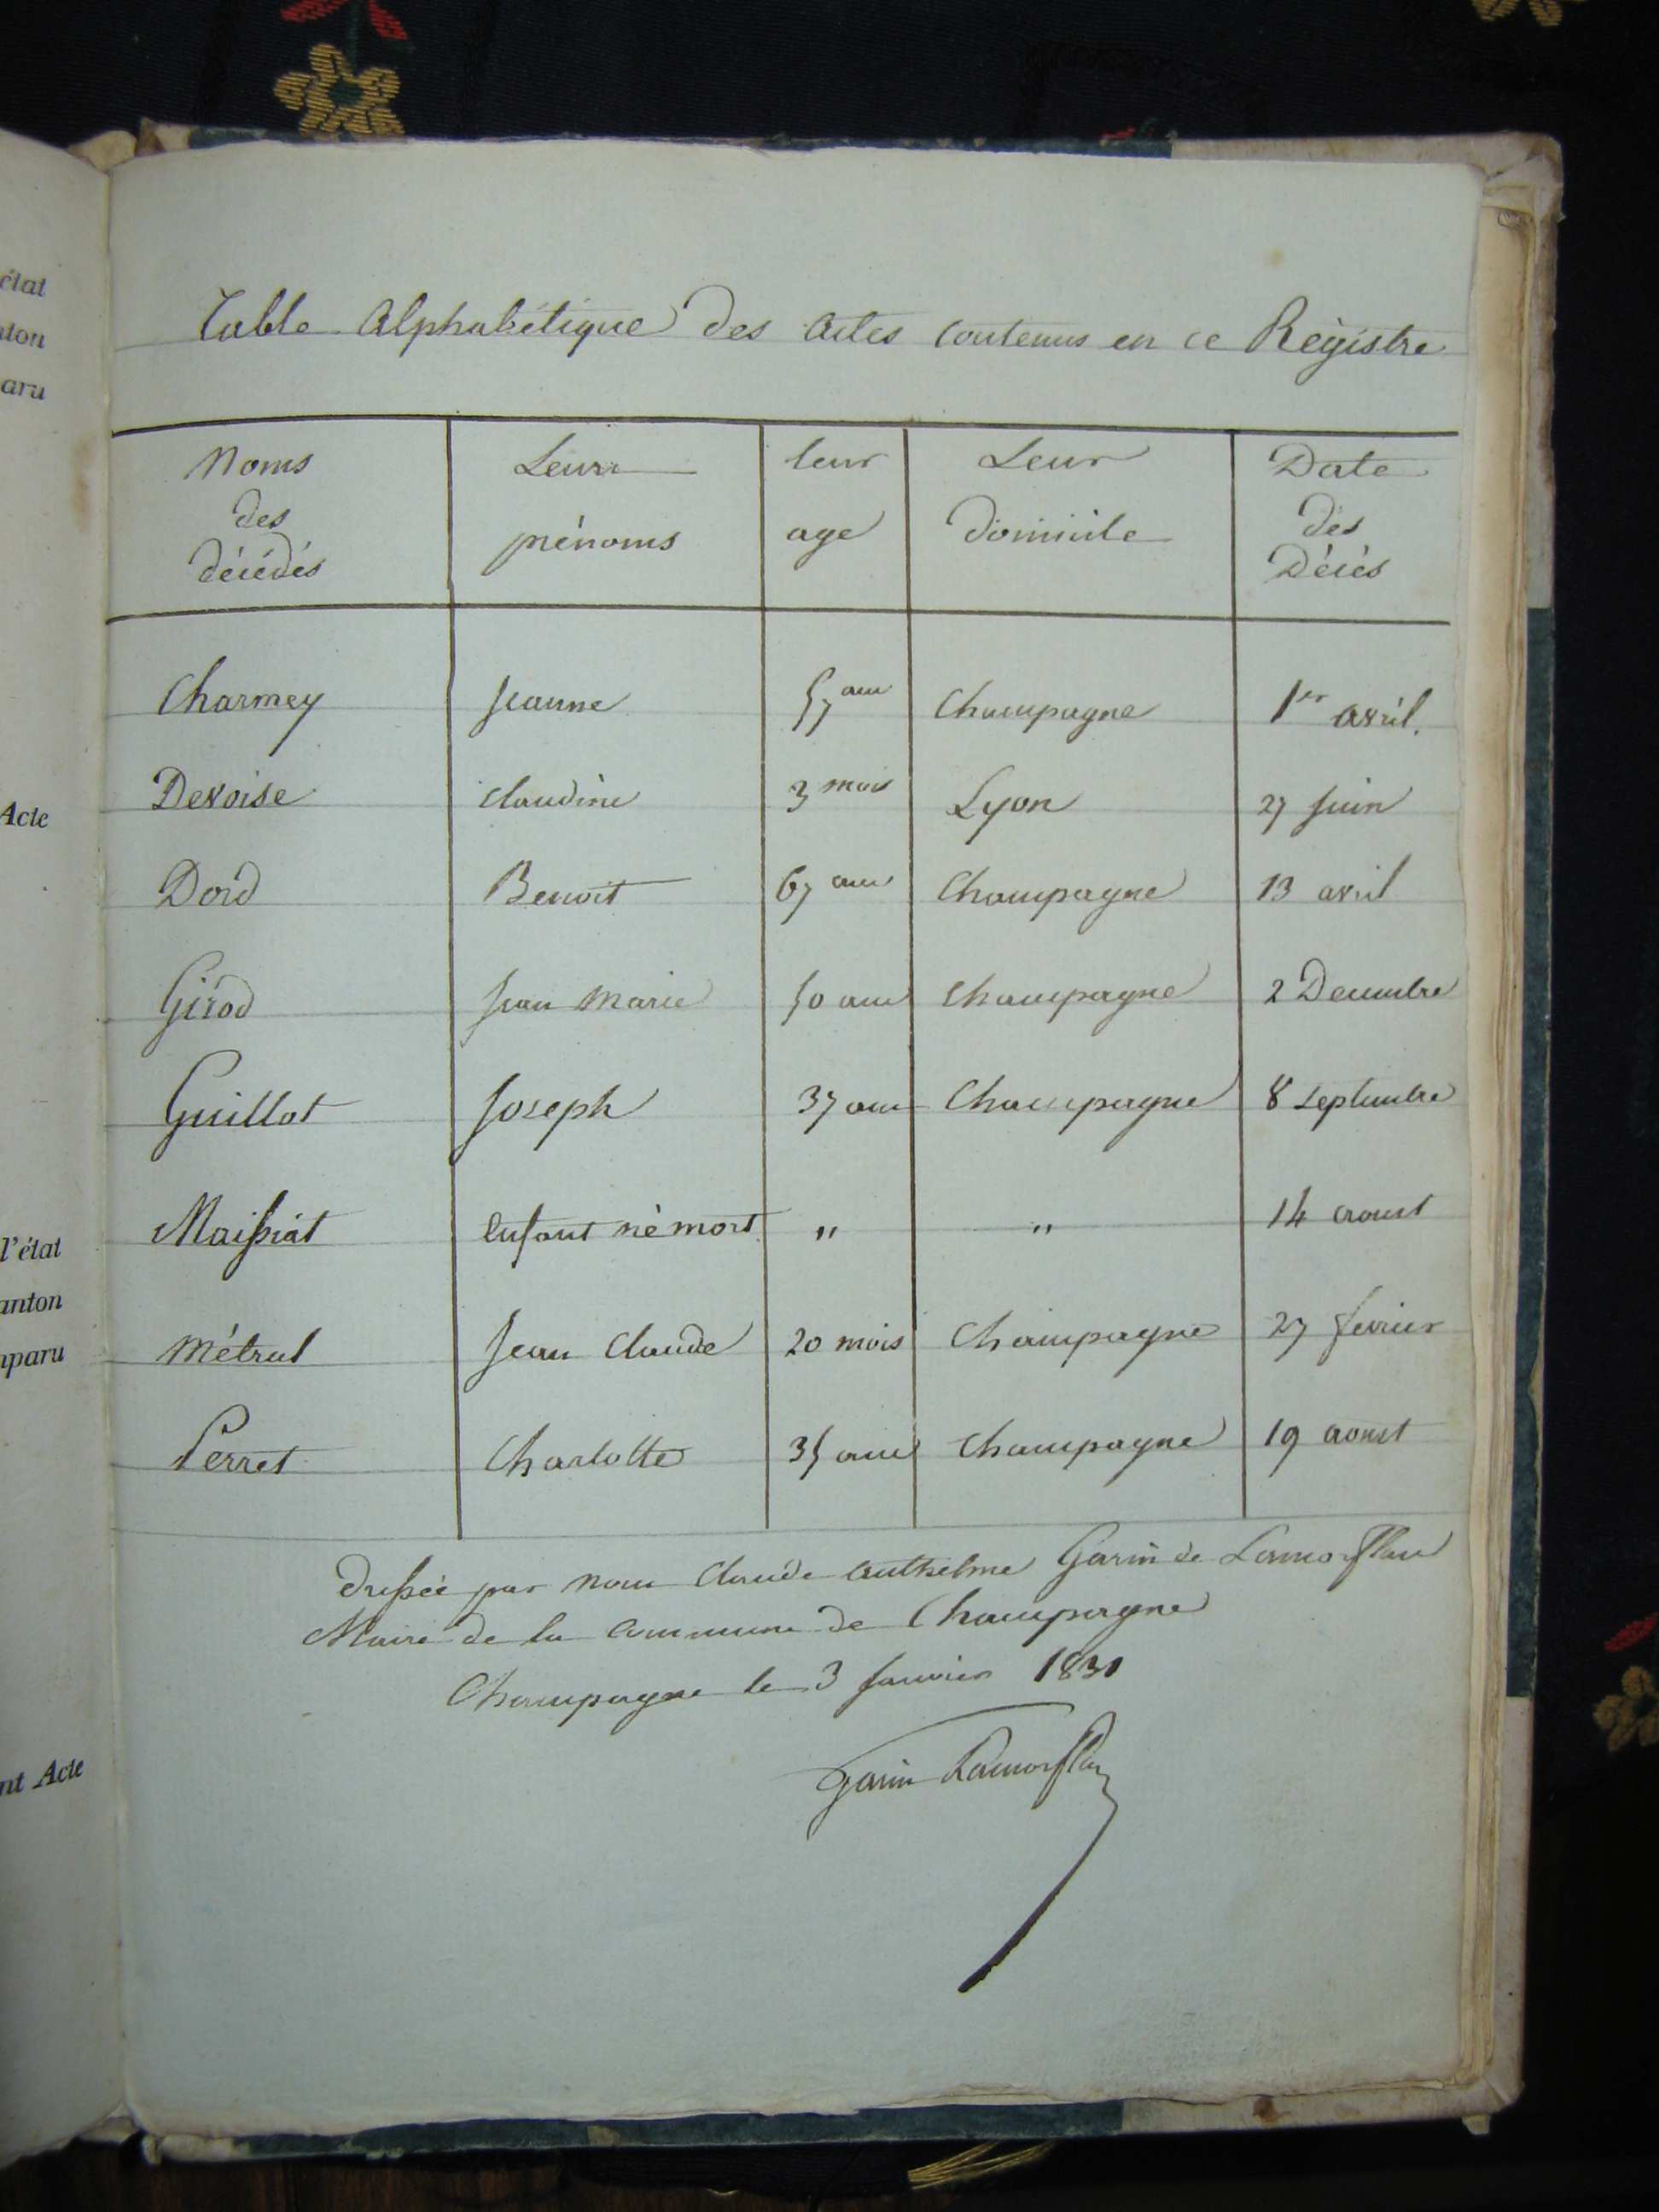 état
nton
aru
Acte
l'état
anton
mparu
nt Acte
Table Alphabétique des actes contenus en ce Régistre
Noms des décédés | Leurs prénoms | leur age | Leur domicile | Date des Décès
Charmey | Jeanne | 57 ans | Champagne | 1er avril.
Devoise | Claudine | 3 mois | Lyon | 27 Juin
Dord | Benoit | 67 ans | Champagne | 13 avril
Girod | Jean Marie | 50 ans | Champagne | 2 Decembre
Guillot | Joseph | 37 ans | Champagne | 8 septembre
Maissiat | Enfant né mort | " | " | 14 aoust
Métral | Jean Claude | 20 mois | Champagne | 27 fevrier
Perret | Charlotte | 35 ans | Champagne | 19 aoust
dressée par nous Claude Anthelme Garin de Lamorflan
Maire de la Commune de Champagne
Champagne le 3 Janvier 1831
Garin Lamorflan